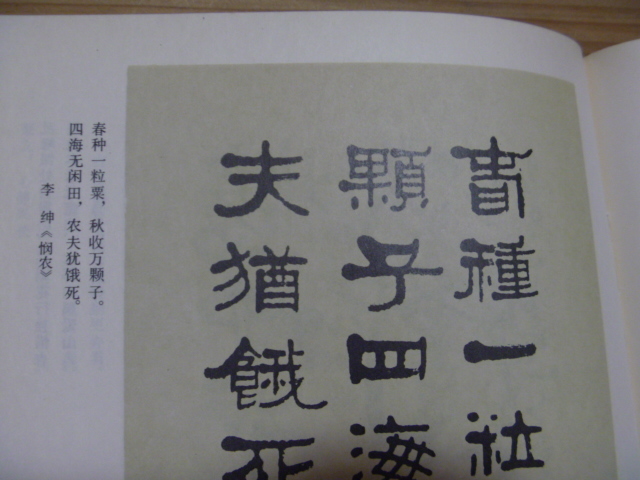 春種一粒
顆子四海
夫猶餓死
春种一粒粟，秋收万颗子。
四海无闲田，农夫犹饿死。
李 绅《悯农》